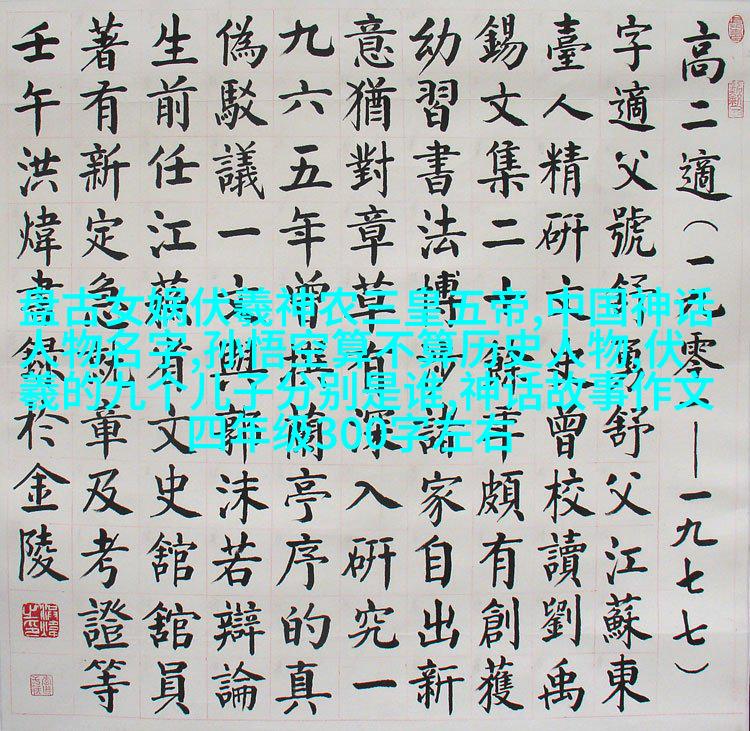 高二適（一九零——一九七七）
字適父號舒舒父江蘇東
臺人精研文史曾校讀劉禹
錫文集二十餘年頗有創獲
幼習書法博涉諸家自出新
意猶對章草有深入研究一
九六五年曾撰蘭亭序的真
偽駁議一文與郭沫若辯論
生前任江蘇省文史舘舘員
著有新定急就章及考證等
壬午洪煒書錄於金陵
盘古女娲伏羲神农三皇五帝,中国神话
人物名字,孙悟空算不算历史人物,伏
羲的九个儿子分别是谁,神话故事作文
四年级300字左右